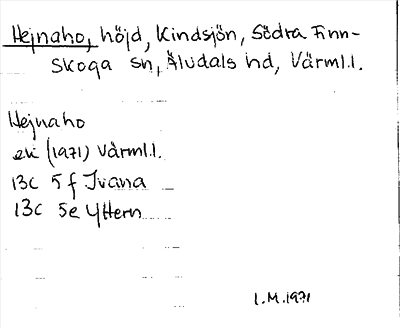 Hejnaho, höjd, Kindsjön, Södra Finn-
skoga sn, Äludals hd, Värml.l.
Hejnaho
ek (1971) Värml.l.
13c 5f Ivana
13c 5e Yttern
I.M.1971